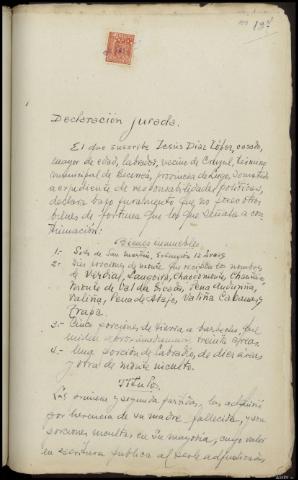 127
Declaración jurada.
El que suscribe Jesús Díaz López, casado,
mayor de edad, labrador, vecino de Cruzul, término
municipal de Becerreá, provincia de Lugo, sometido
a expediente de responsabilidades políticas,
declara bajo juramento que no posee otros
bienes de fortuna que los que señala a con
tinuación:
Bienes inmuebles
1.- de San Martín,
2.- porciones de monte que reciben los nombres
de
Monte de Val de
Valiña, Pena de Valiña
Trapa.
3.- Cinco porciones de a barbecho, que
miden aproximadamente treinta áreas
4.- Una porción de labradío, de diez áreas
y otra de monte inculto.
Títulos
Las primera y segunda partidas, las adquirió
por herencia de su madre fallecida, y son
porciones incultas en su mayoría, cuyo valor
en escritura pública al serle adjudicadas